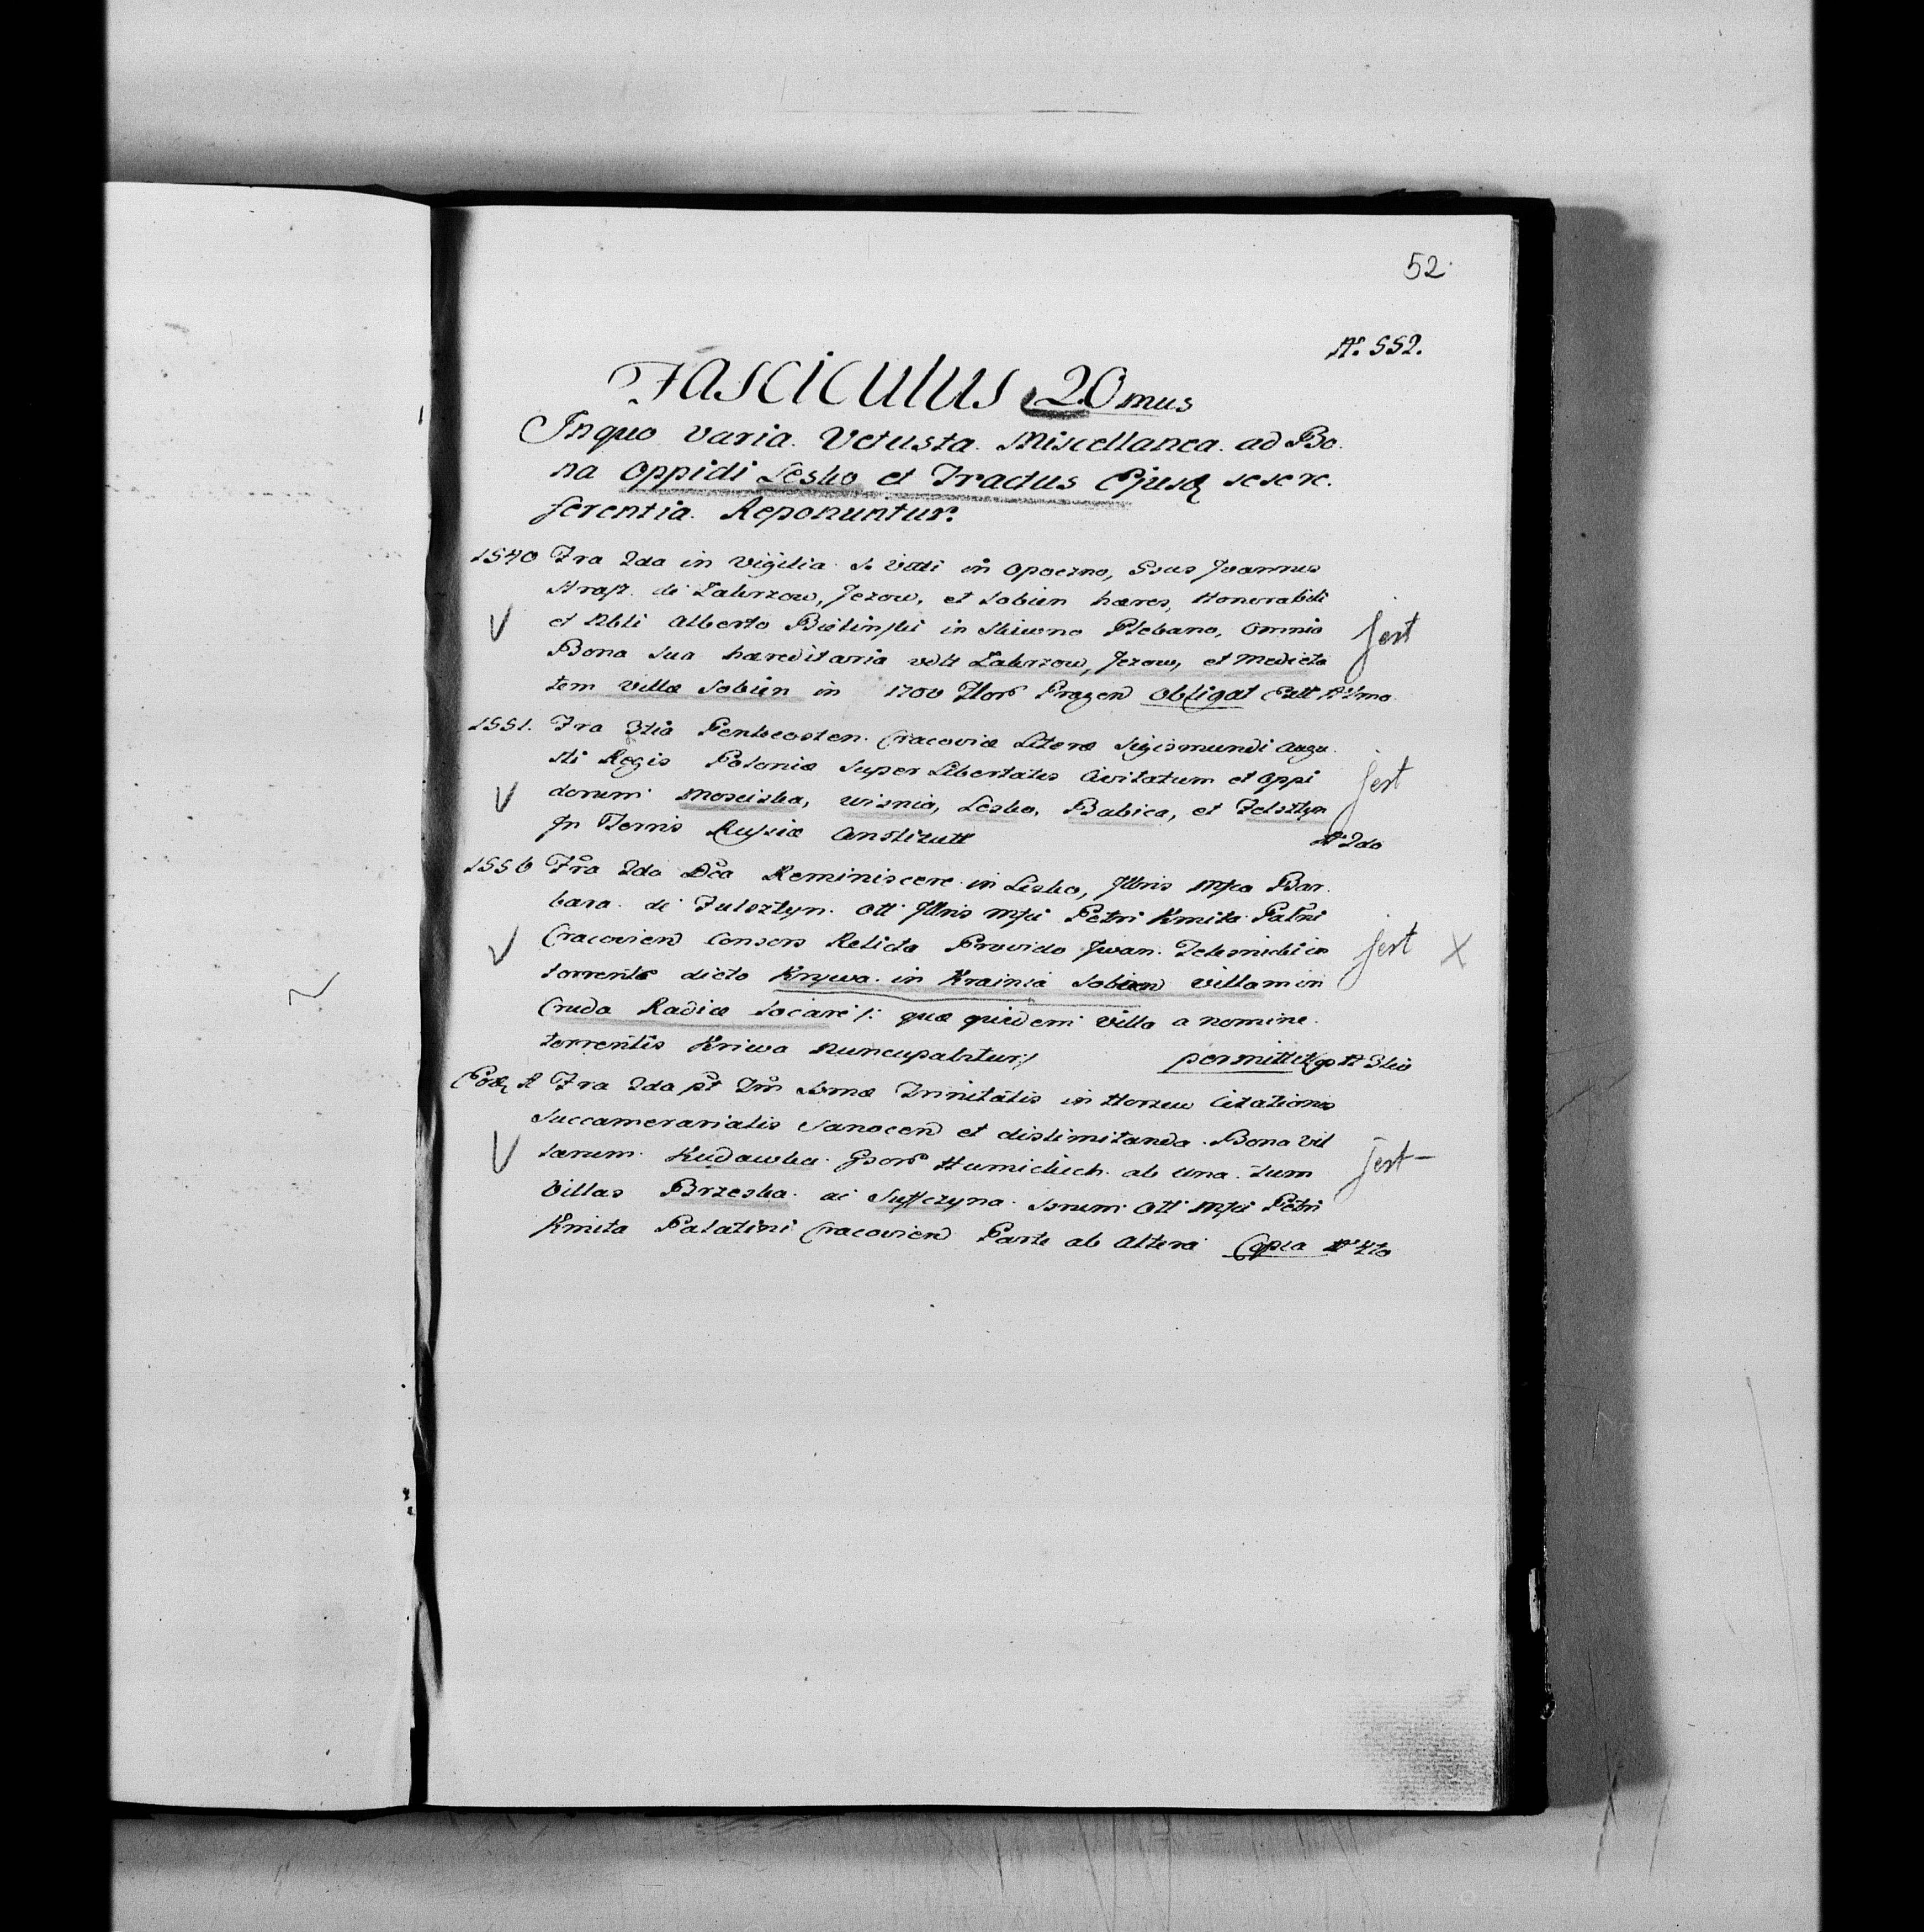 52
No. 552.
Fasciculus 20mus
In quo varia Vetusta Miscellanea ad Bo.
na Oppidi Lesko et Tractus Ejusd sese re.
ferentia Reponuntur.
1540 Fra 2da in Vigilia S. Viti in Opoczno, Gsus Joannes
de Zakrzow, Jezow, et Sobien hæres, Honorabili
et Nbli Alberto in Plebano, Omnia
Bona sua hæreditaria vdlt Zakrzow, Jezow, et Medieta
tem villæ Sobien in 1700 Flor Pragen obligat No 1mo
jest
1551. Fra 3tia Penthecosten. Cracoviæ Literæ Sigismundi Augu
sti Regis Poloniæ super Libertates Civitatum et Oppi
dorum Mosciska, Wisnia, Lesko, Babica, et Felsztyn
In Terris Russiæ No 2do
jest
1556 Fra 2da Dca Reminiscere in Lesko, Illris Mfca Bar.
bara de Fulsztyn olt Illris Mfci Petri Kmita Patni
Cracovien Consors Relicta Provido Jwan in
torrente dicto Krywa in Krainia Sobien villam in
Cruda Radice Locare /: quæ quidem Villa a nomine
torrentis Kriwa nuncupabitur :/ permittit No 3tio
jest X
Eod A Fra 2da pt Dm Ssmæ Trinitatis in Citationes
Succamerarialis Sanocen et dislimitanda Bona vil
larum Kudawka Gsorˢ Humickich ab una tum
Villas Brzeska ac Suffczyna olt Mfci Petri
Kmita Palatini Cracovien Parte ab Altera Copia No 4to
jest